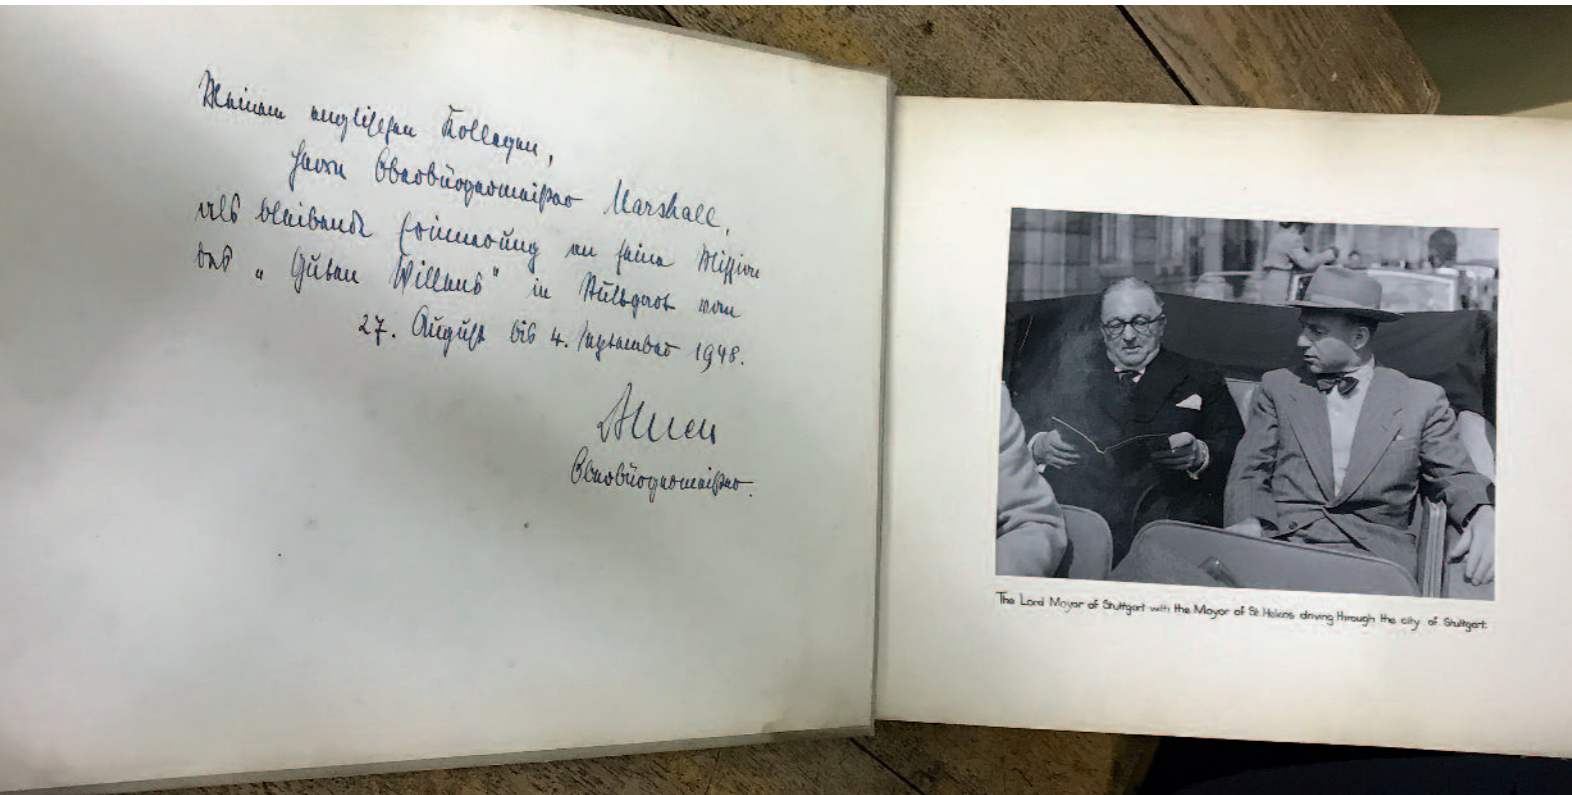 Meinem englischen Kollegen,
Herrn Oberbürgermeister Marshall,
als bleibende Erinnerung an seine Mission
des „Guten Willens" in Stuttgart vom
27. August bis 4. September 1948.
Oberbürgermeister.
The Lord Mayor of Stuttgart with the Mayor of St. Helens driving through the city of Stuttgart.